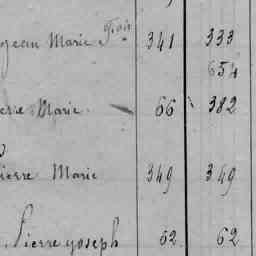 jean Marie Fois 341 333
654
erre Marie 66 382
Pierre Marie 349 349
Pierre yoseph 62 62